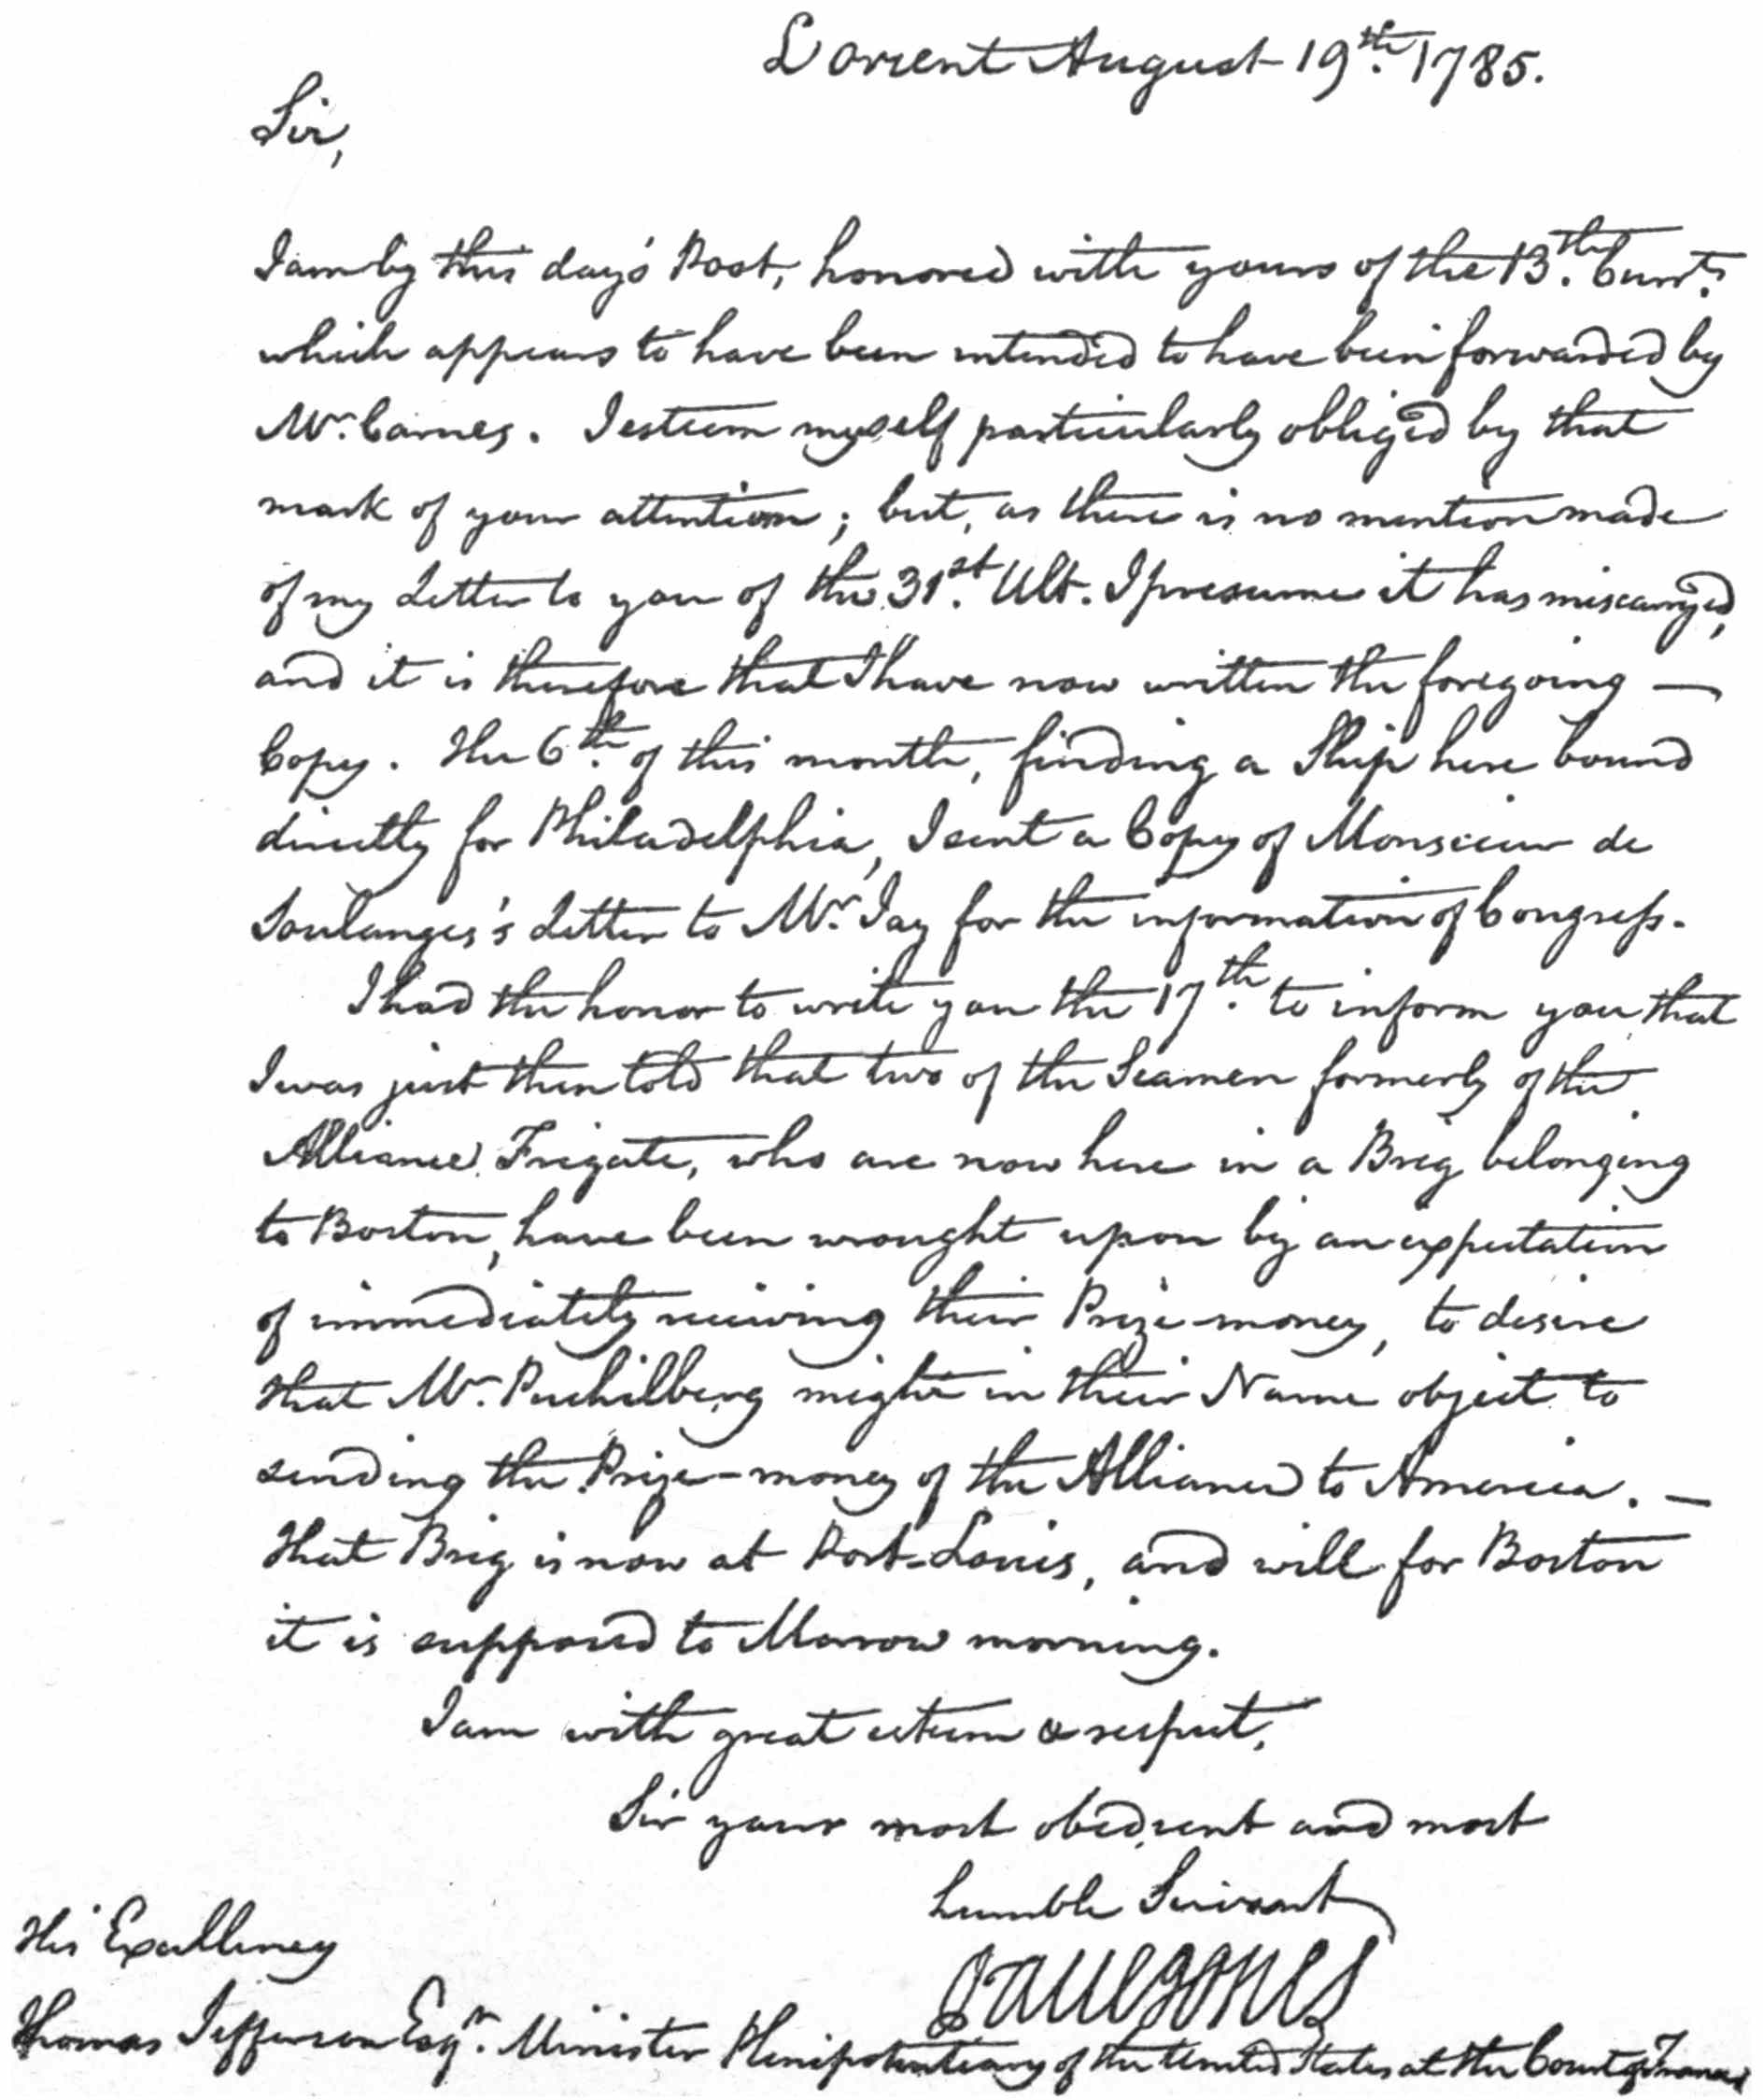 L'Orient August 19th. 1785.
Sir,
I am by this day's Post, honored with yours of the 13th. Currt.
which appears to have been intended to have been forwarded by
Mr. Carnes. I esteem myself particularly obliged by that
mark of your attention; but, as there is no mention made
of my Letter to you of the 31st. Ult. I presume it has miscarryed,
and it is therefore that I have now written the foregoing —
Copy. The 6th. of this month, finding a Ship here bound
directly for Philadelphia, I sent a Copy of Monsieur de
Soulanges's Letter to Mr. Jay for the information of Congress.
I had the honor to write you the 17th. to inform you that
I was just then told that two of the Seamen formerly of the
Alliance Frigate, who are now here in a Brig belonging
to Boston, have been wrought upon by an expectation
of immediately receiving their Prize-money, to desire
that Mr. Puchilberg might in their Name object to
sending the Prize-money of the Alliance to America. —
that Brig is now at Port-Louis, and will for Boston
it is supposed to Morrow morning.
I am with great esteem & respect,
Sir your most obedient and most
humble Servant
Paul Jones
His Excellency
Thomas Jefferson Esqr. Minister Plenipotentiary of the United States at the Court of France